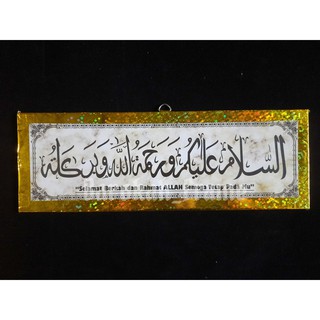 السلام عليكم ورحمة الله وبركاته
"Selamat Berkah dan Rahmat ALLAH Semoga Tetap Pada Mu"